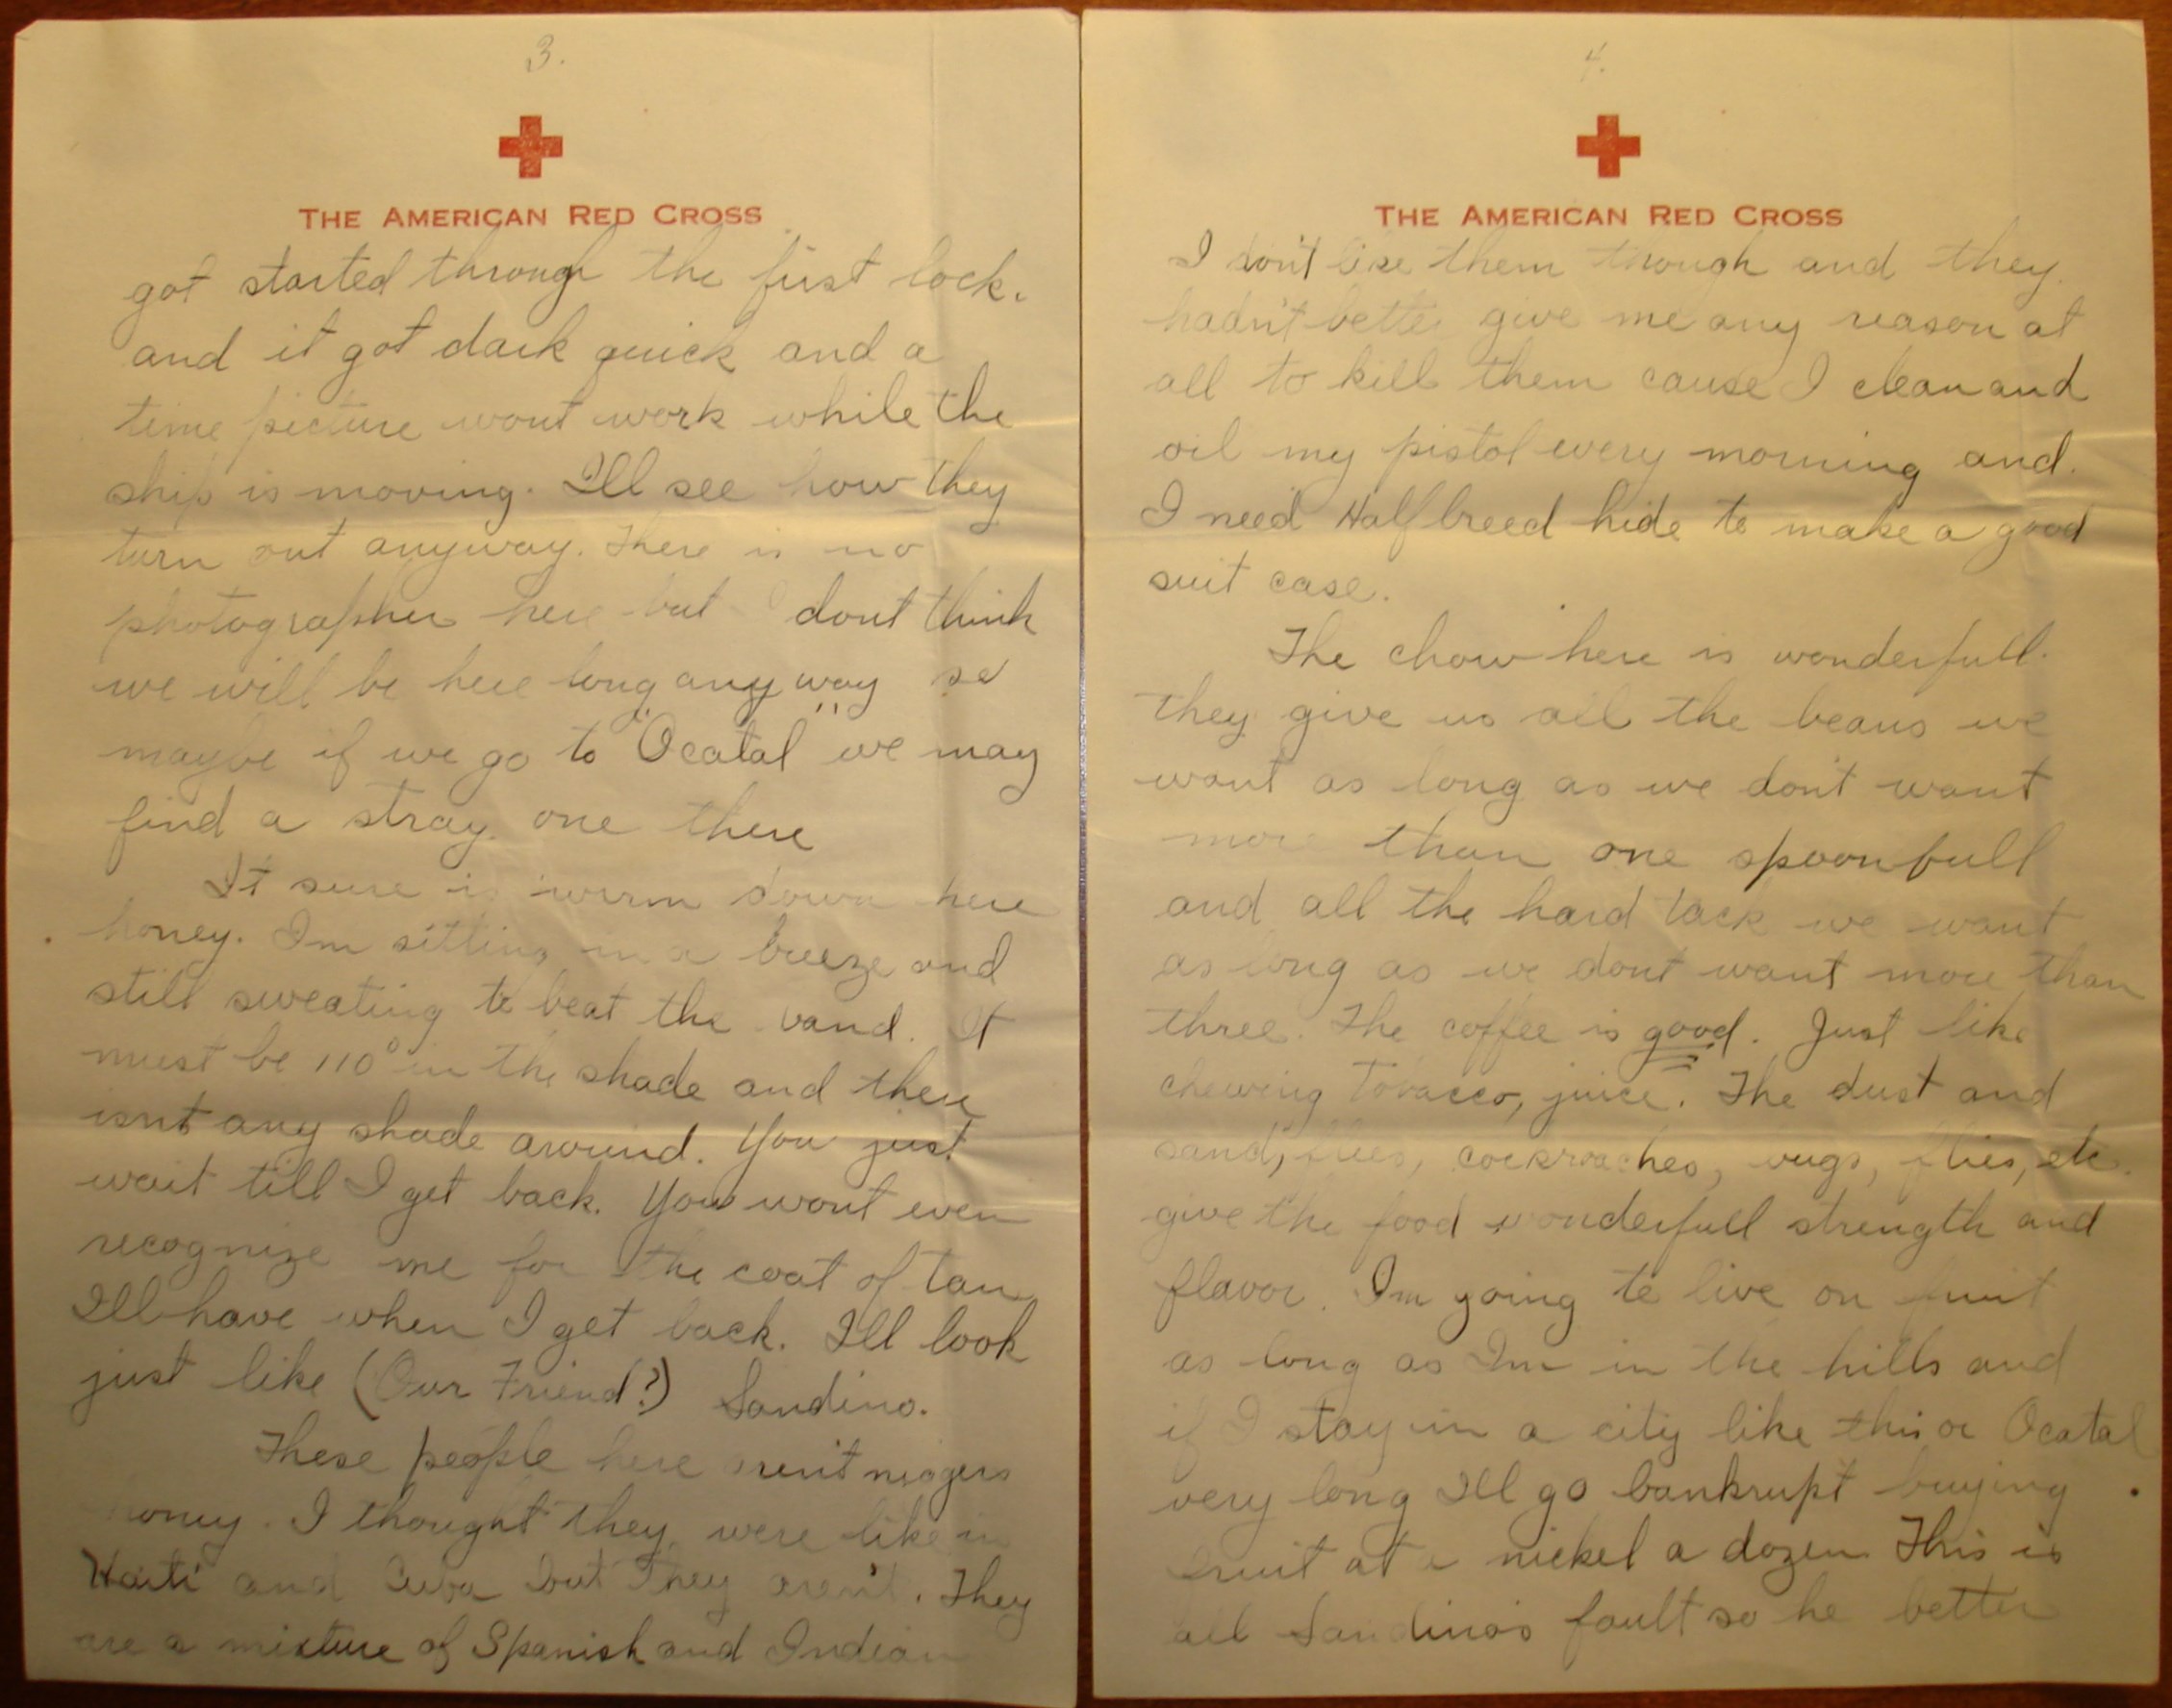 3.
THE AMERICAN RED CROSS
got started through the first lock.
and it got dark quick and a
time picture wont work while the
ship is moving. Ill see how they
turn out anyway. There is no
photographer here but I dont think
we will be here long any way so
maybe if we go to "Ocatal" we may
find a stray one there
It sure is warm down here
honey. Im sitting in a breeze and
still sweating to beat the band. It
must be 110° in the shade and there
isnt any shade around. You just
wait till I get back. You wont even
recognize me for the coat of tan
Ill have when I get back. Ill look
just like (Our Friend?) Sandino.
These people here aren't niggers
honey. I thought they were like in
Haiti and Cuba but they aren't. They
are a mixture of Spanish and Indian
4.
THE AMERICAN RED CROSS
I don't like them though and they
hadn't better give me any reason at
all to kill them cause I clean and
oil my pistol every morning and
I need Halfbreed hide to make a good
suit case.
The chow here is wonderfull.
they give us all the beans we
want as long as we don't want
more than one spoonfull
and all the hard tack we want
as long as we dont want more than
three. The coffee is good. Just like
chewing tobacco, juice. The dust and
sand, flees, cockroaches, bugs, flies, etc.
give the food wonderfull strength and
flavor. Im going to live on fruit
as long as Im in the hills and
if I stay in a city like this or Ocatal
very long Ill go bankrupt buying
fruit at a nickel a dozen This is
all Sandino's fault so he better